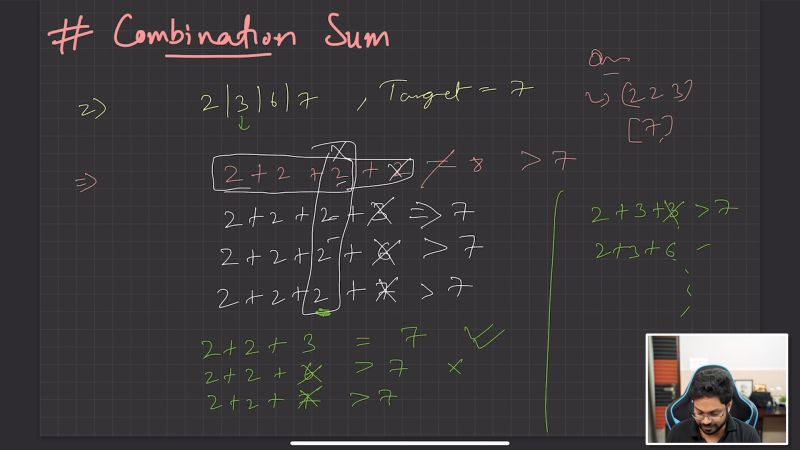 # Combination Sum
Ans
2) 2|3|6|7 , Target = 7
(2 2 3)
[7,]
=> 2 + 2 + 2 + 2 = 8 > 7
2 + 2 + 2 + 3 => 7
2 + 2 + 2 + 6 > 7
2 + 2 + 2 + 7 > 7
2 + 2 + 3 = 7 ✓
2 + 2 + 6 > 7 x
2 + 2 + 7 > 7
2 + 3 + 3 > 7
2 + 3 + 6